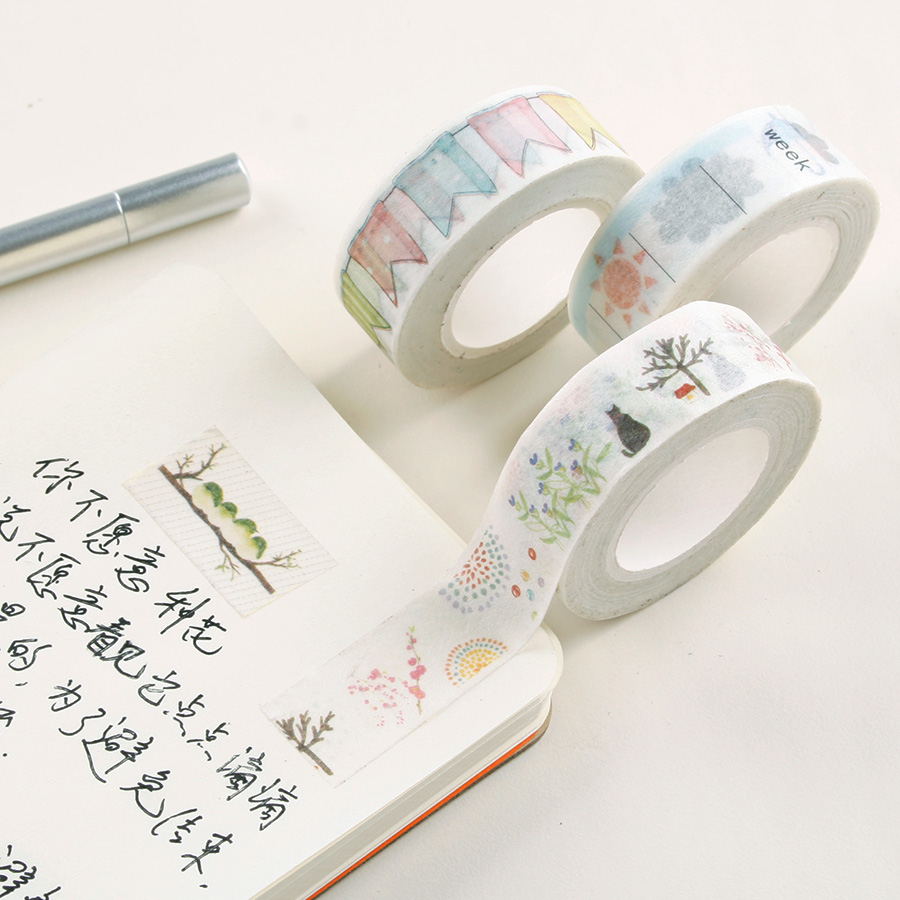 week
你不愿意种花
说不愿意看见它点点滴滴
的，为了避免结束，
避免